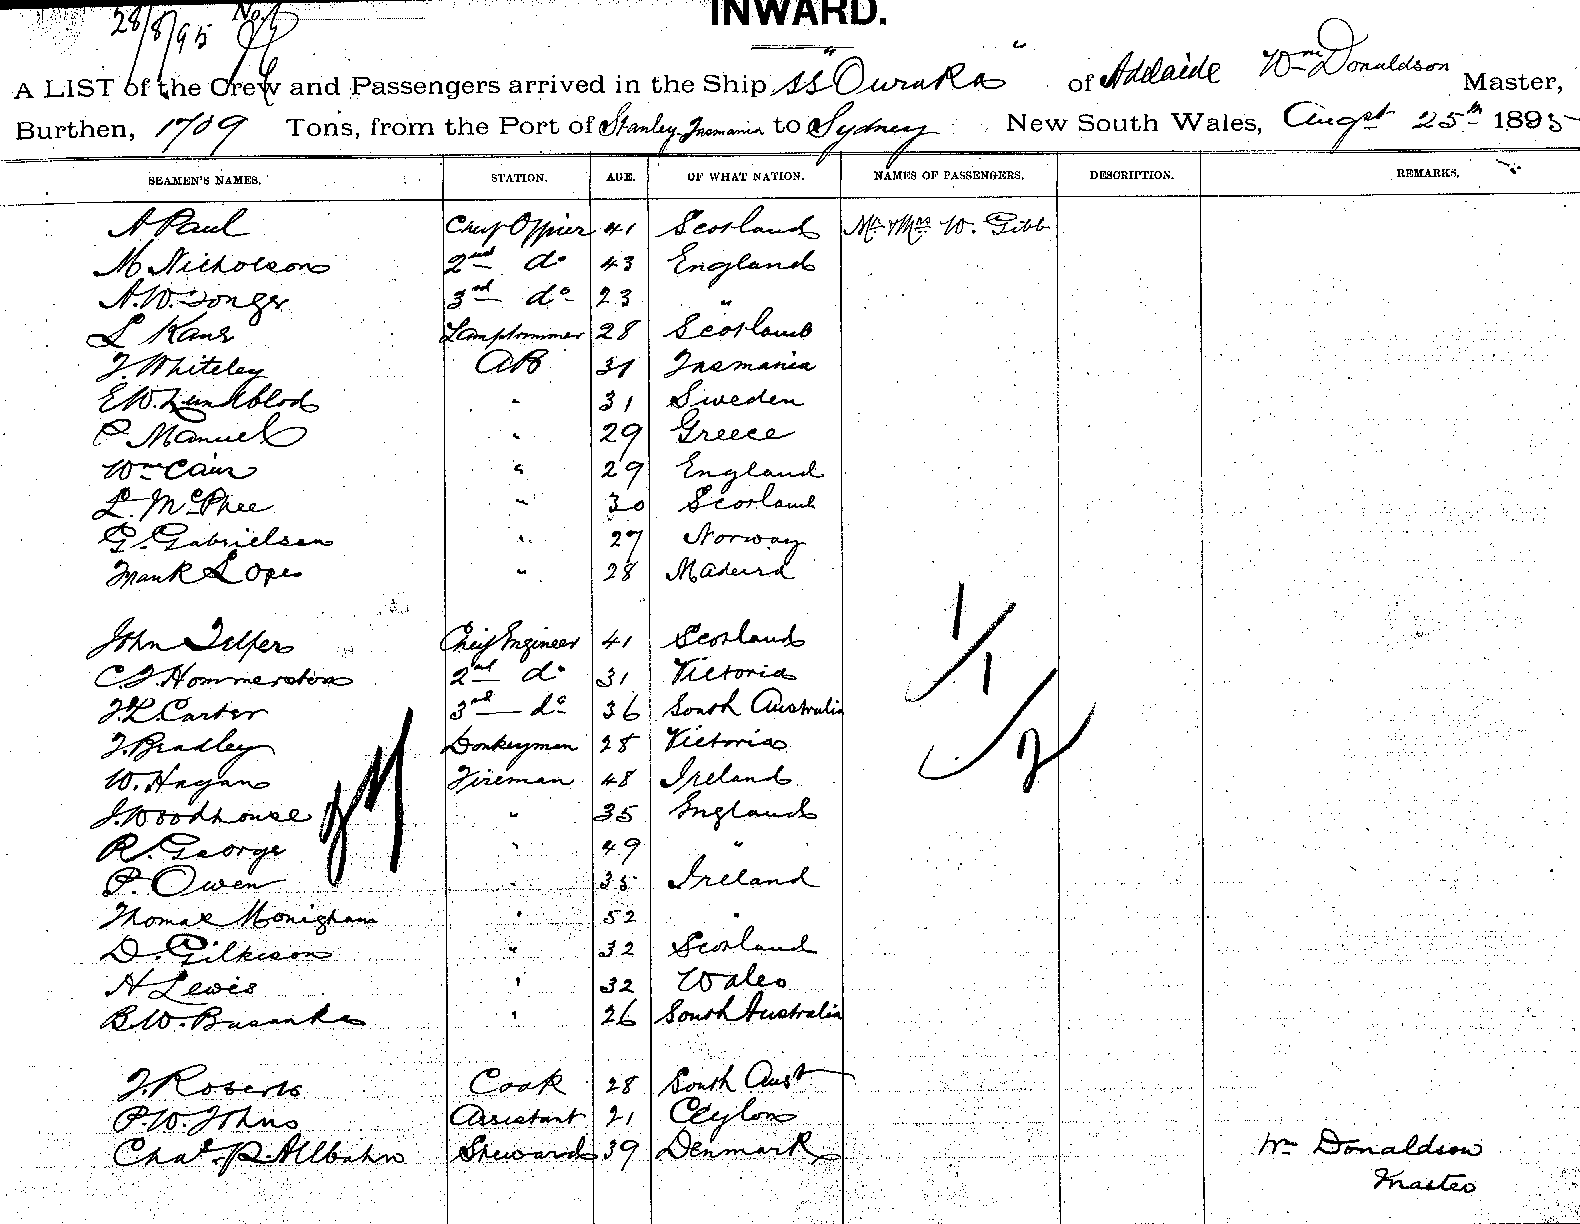 INWARD.
28/8/95
A LIST of the Crew and Passengers arrived in the Ship SS "Ouraka" of Adelaide Wm Donaldson Master,
Burthen, 1709 Tons, from the Port of Stanley Tasmania to Sydney New South Wales, Augst 25th 1895
SEAMEN'S NAMES. STATION. AGE. OF WHAT NATION. NAMES OF PASSENGERS. DESCRIPTION. REMARKS.
A Paul Chief Officer 41 Scotland Mr & Mrs W. Gibb
M Nicholson 2nd do 43 England
A. W. Songer 3rd do 23 "
L Kane Lamptrimmer 28 Scotland
J. Whiteley AB 31 Tasmania
E W. Lundblod " 31 Sweden
P Manuel " 29 Greece
Wm Cain " 29 England
L. McPhee " 30 Scotland
G. Gabrielsen " 27 Norway
Frank Lopes " 28 Madeira
John Telfer Chief Engineer 41 Scotland
C J. Hommerston 2nd do 31 Victoria
J. L. Carter 3rd do 36 South Australia
J. Bradley Donkeyman 28 Victoria
W. Hagan Fireman 48 Ireland
J. Woodhouse " 35 England
R. George " 49 "
P. Owen " 35 Ireland
Thomas Monigham " 52 "
D. Gilkison " 32 Scotland
H Lewis " 32 Wales
B W. 26 South Australia
1/1
2
J. Roberts Cook 28 South Aust
P. W. Johns Assistant 21 Ceylon
Chas. P. Allbahn Steward 39 Denmark
Wm Donaldson
Master